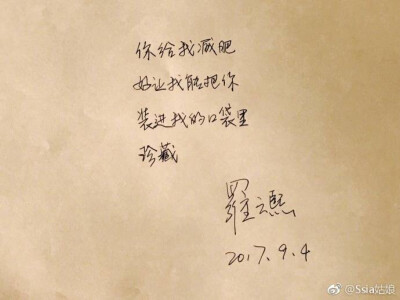 你给我减肥
好让我能把你
装进我的口袋里
珍藏
羅云熙
2017.9.4
@Ssia姑娘